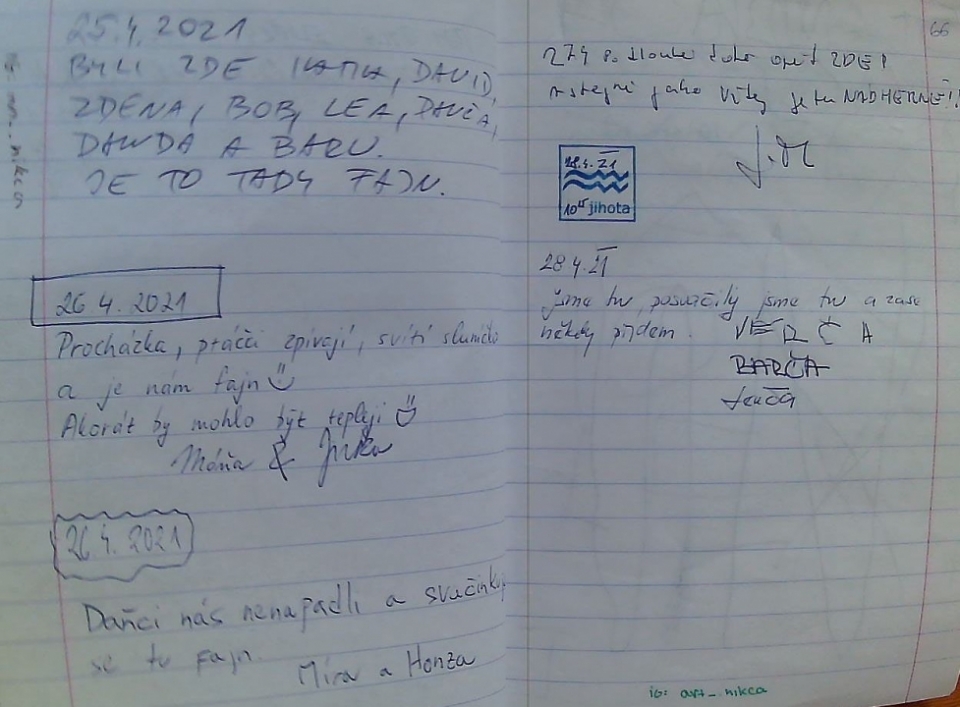 25.4.2021
BYLI ZDE KATKA, DAVID,
ZDENA, BOB, LEA, DAVČA,
DAVČA A BARU.
JE TO TADY FAJN.
26 4. 2021
Procházka, ptáčci zpívají, svítí sluníčko
a je nám fajn
Akorát by mohlo být tepleji
Máňa & Jirka
26.4. 2021
Daňci nás nenapadli a svačinkuj
se tu fajn.
Míra a Honza
66
27.4 Po dlouhé době opět ZDE!
a stejně jako vždy je tu NÁDHERNĚ!!
J.M
28.4.21
10 jihota
28 4.21
Jsme tu, posvačily jsme tu a zase
někdy přídem.
VERČA
BARČA
ig: art_nikca